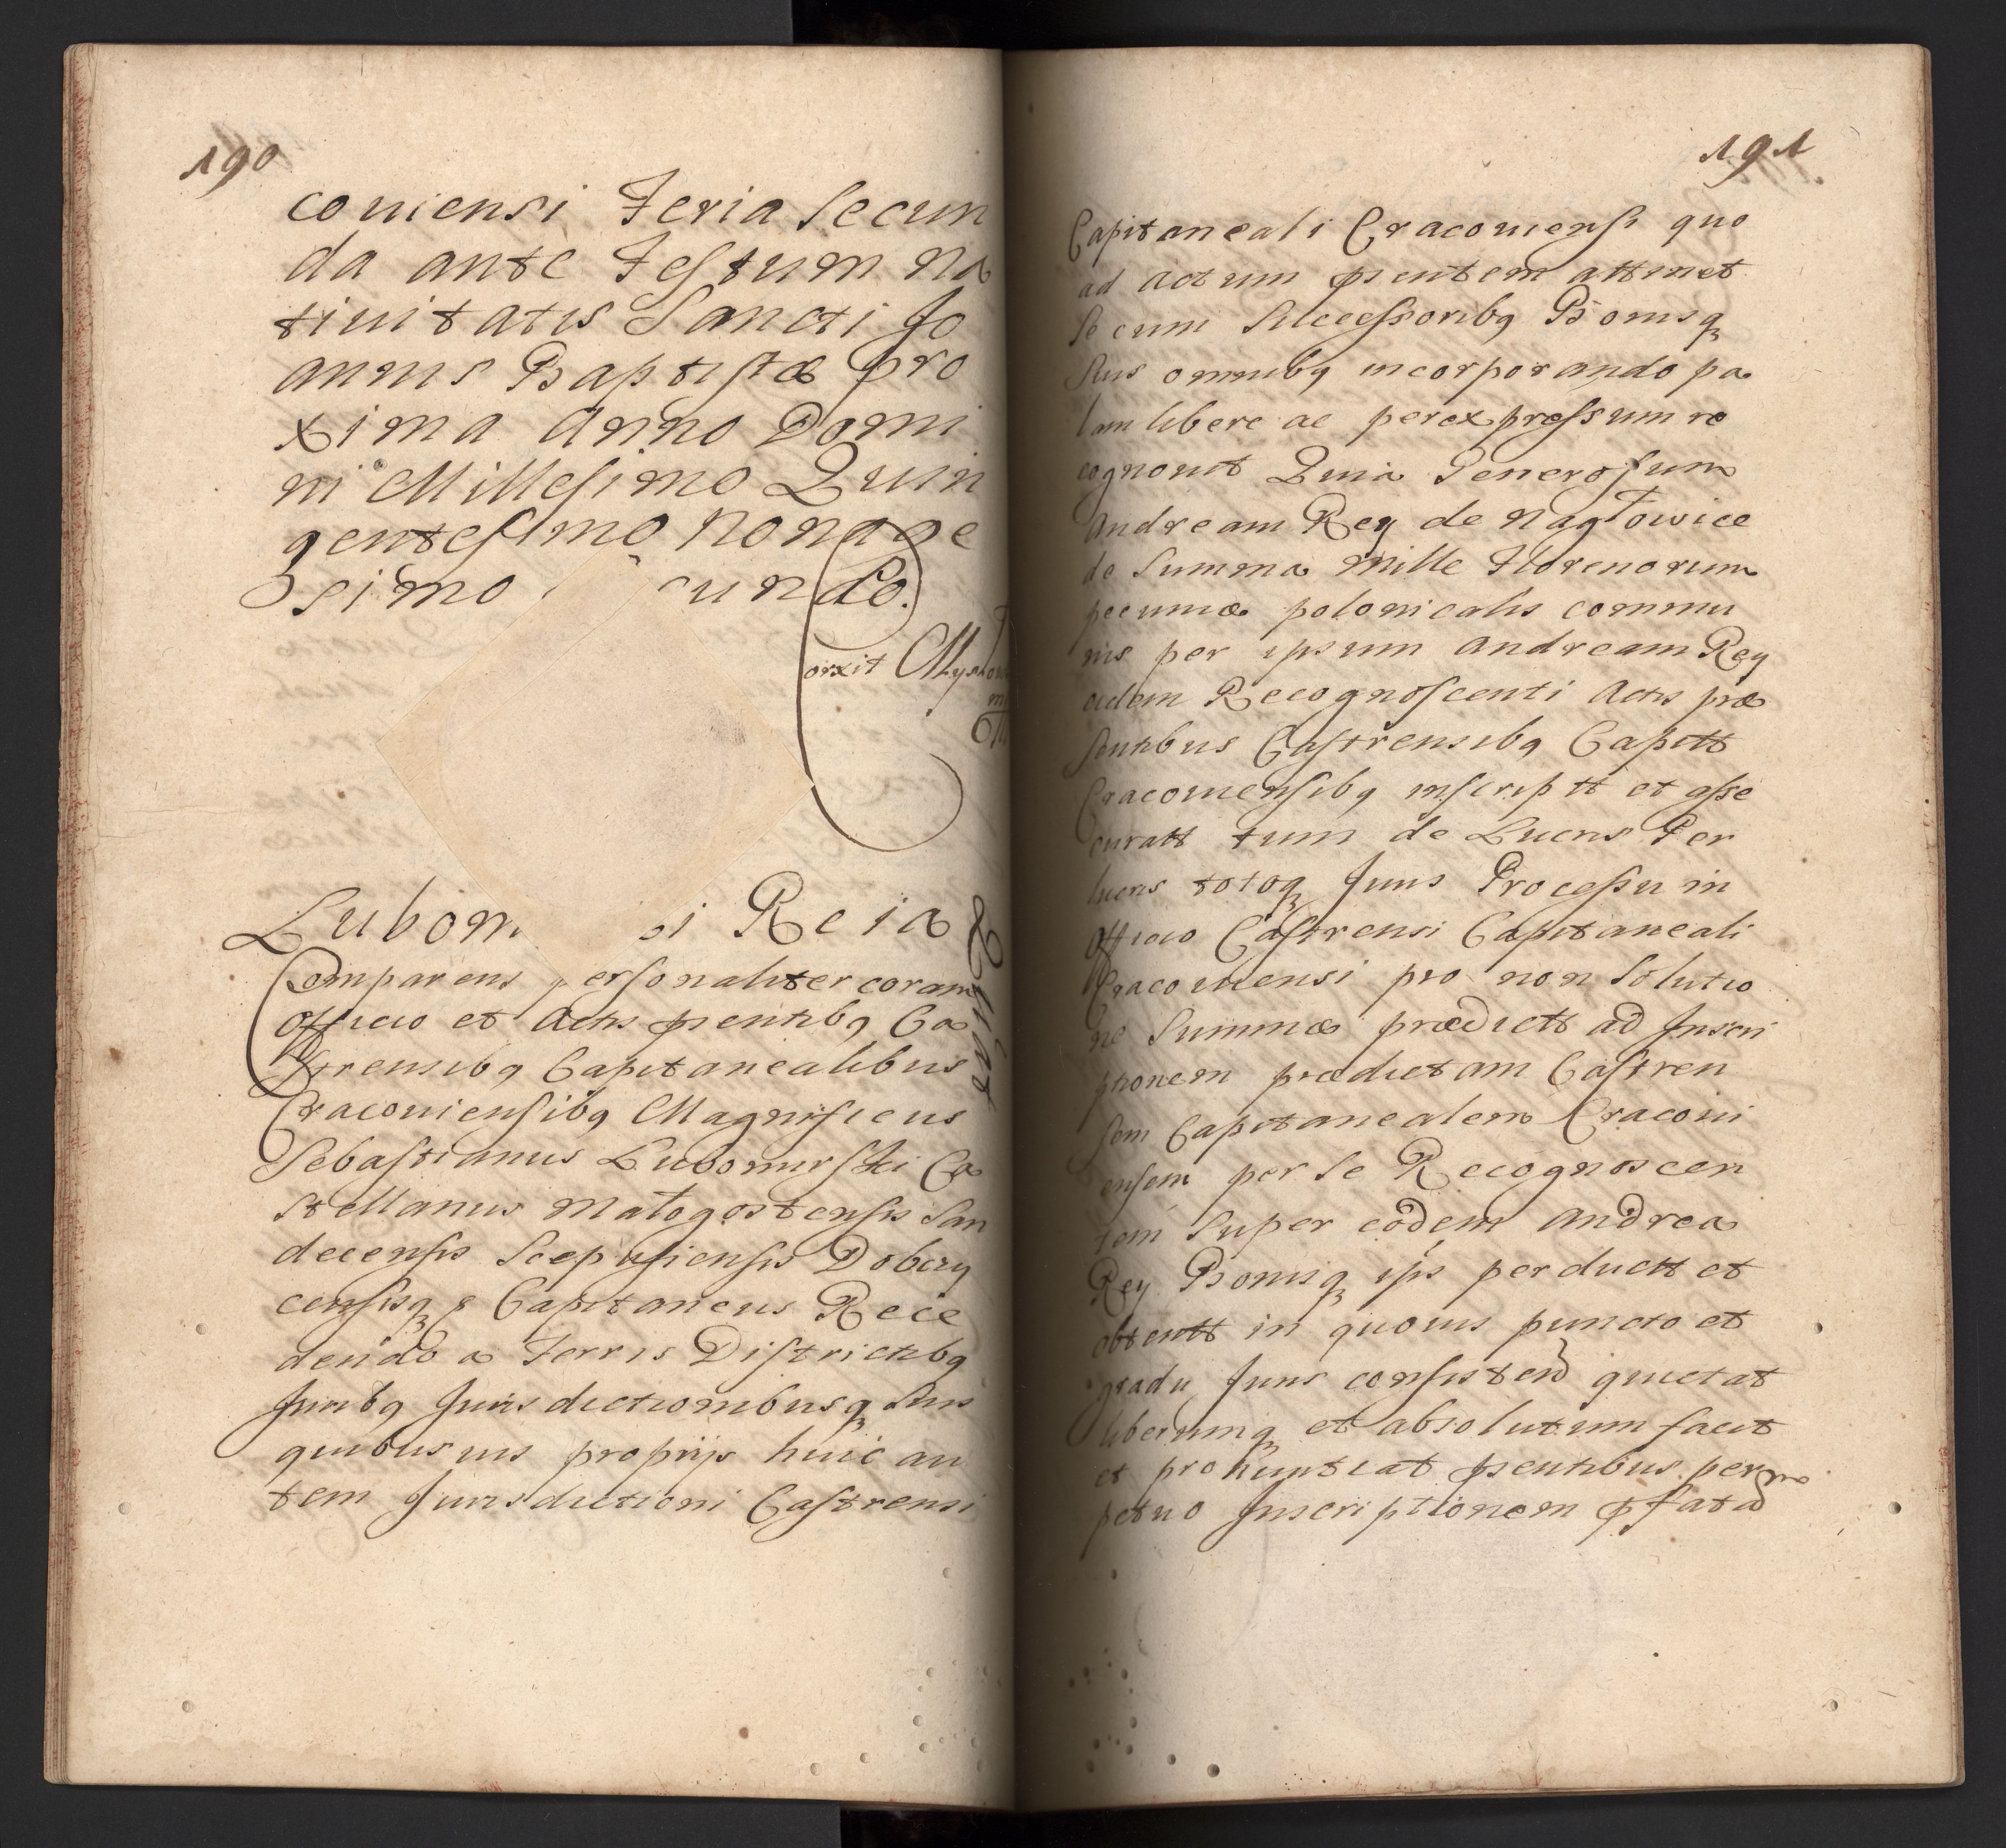 190
couiensi Feria Secun
da ante Festum na
tiuitatis Sancti Jo
annis Baptistæ pro
xima Anno Domi
ni Millesimo Quin
gentesimo Nonage
simo cundo.
Lubom i Reia
Quitat
Comparens personaliter coram
Officio et Actis pntibq Ca
strensibq Capitanealibus
Cracouiensibq Magnificus
Sebastianus Lubomirski Ca
stellanus Małogostensis San
decensis Scepusiensis Dobczy
censisq Capitaneus Rece
dendo a Terris Districtibq
Juribq Jurisdictionibusq suis
quibusuis proprijs huic au
tem Jurisdictioni Castrensi
191
Capitaneali Cracouiensi quo
ad actum pntem attinet
se cum Successoribq Bonisq
suis omnibq incorporando pa
lam libere ac per expressum re
cognouit Quia Generosum
Andream Rey de Nagłowice
de Summa Mille Florenorum
pecuniæ polonicalis commu
nis per ipsum Andream Rey
eidem Recognoscenti Actis præ
sentibus Castrensibq Capitt
Cracouiensibq inscriptt et asse
curatt tum de Lucris Per
lucris totoq Juris Processu in
Officio Castrensi Capitaneali
Cracouiensi pro non Solutio
ne Summæ prædictt ad Inscri
ptionem prædictam Castren
sem Capitanealem Cracoui
ensem per se Recognoscen
tem Super eodem Andrea
Rey Bonisq ips perductt et
obtentt in quouis puncto et
gradu Juris consistend quietat
liberumq et absolutum facit
et pronuntiat pntibus perpe
petuo Inscriptionem pfatam